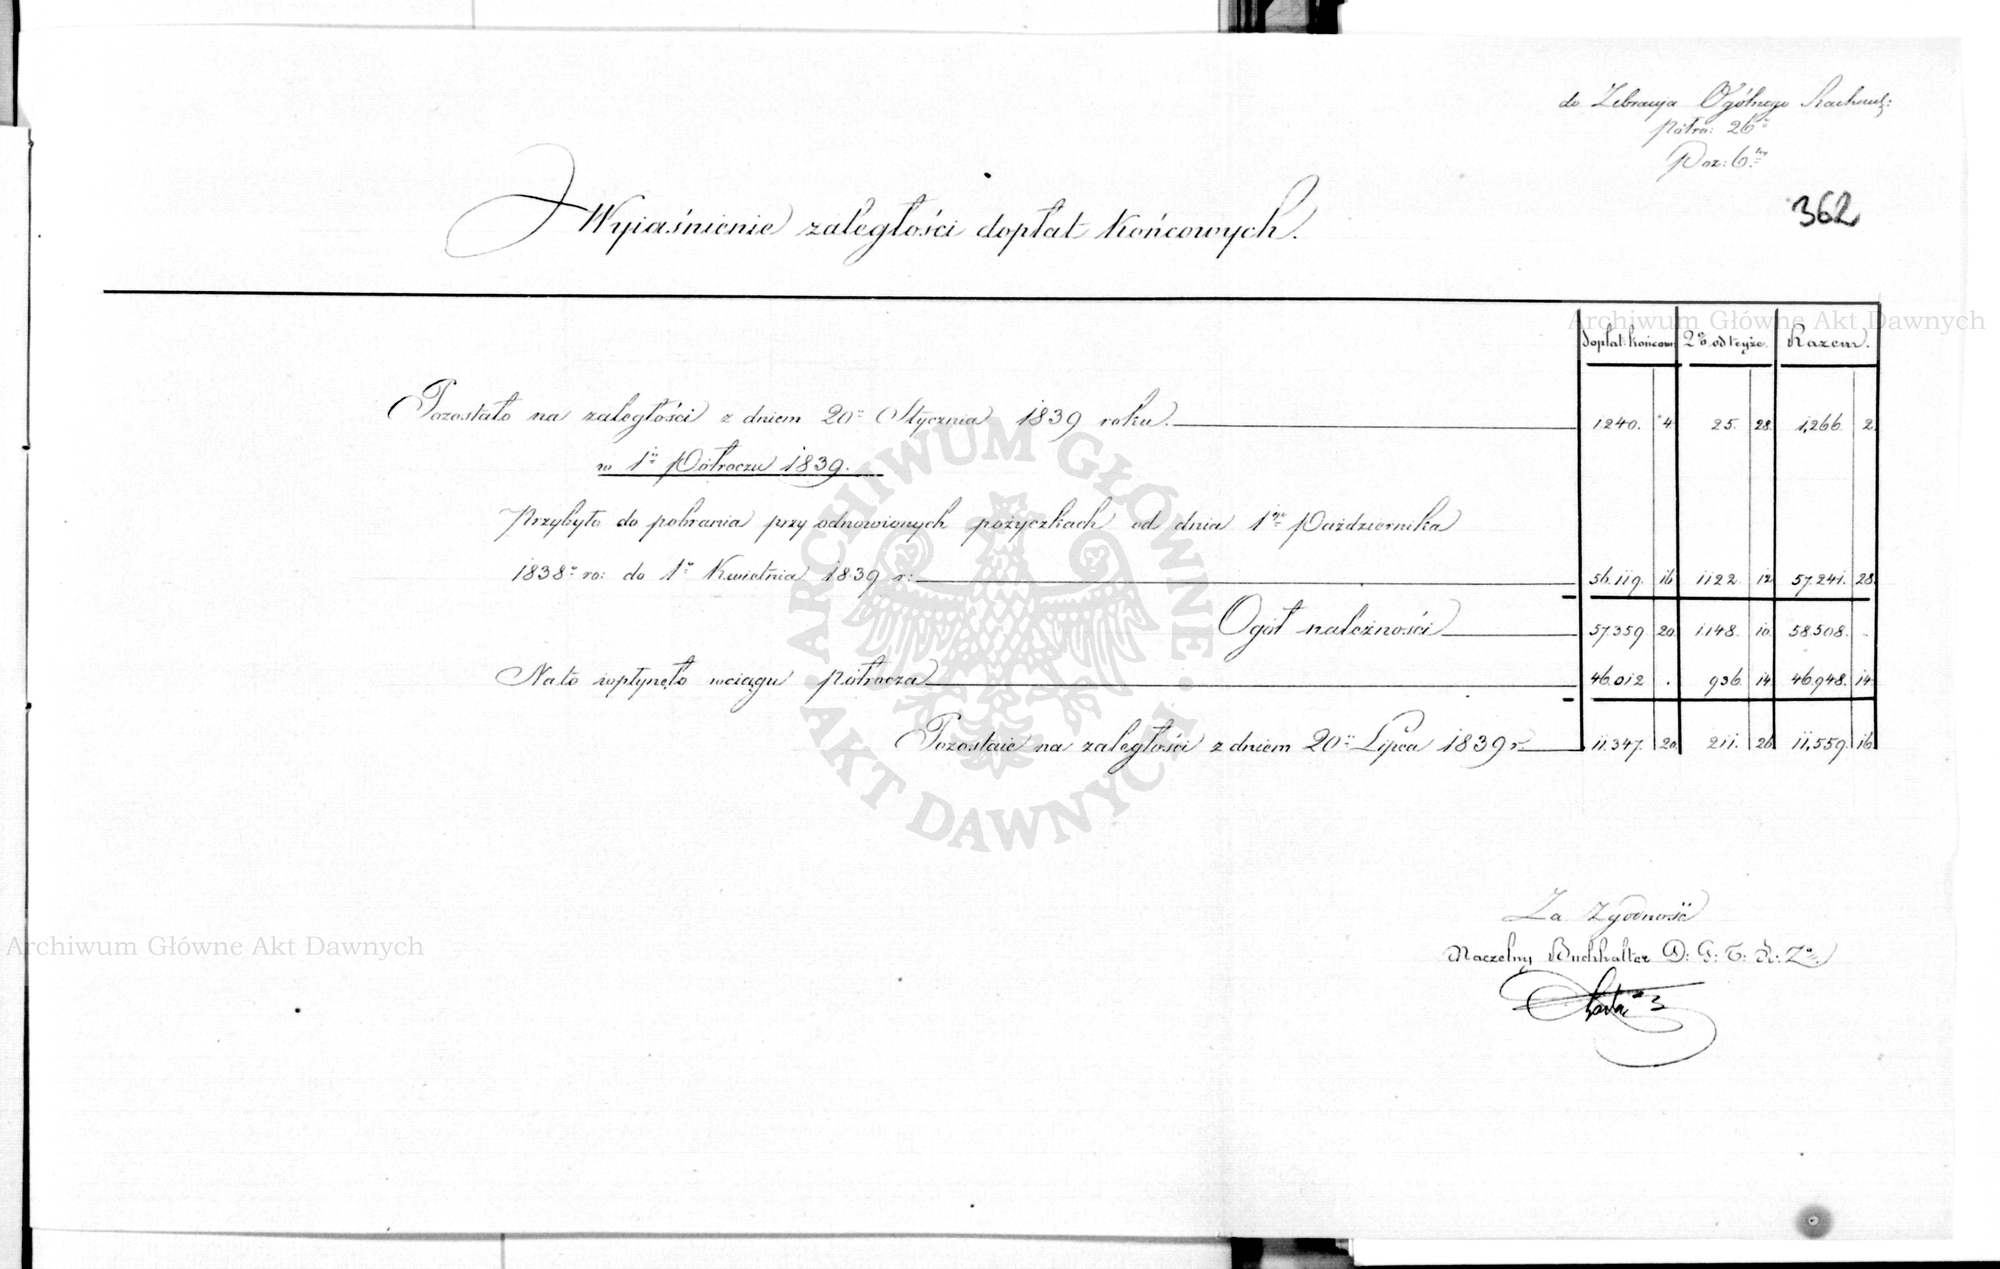 do Zebrania Ogólnego Rachun:
Półro: 26
Poz: 6
362
Wyjaśnienie zaległości dopłat końcowych.
Archiwum Główne Akt Dawnych
dopłat: końcow: 2% od teyże. Razem.
Pozostało na zaległości z dniem 20 Stycznia 1839 roku. 1240. 4 25. 28. 1,266. 2
w 1 Półroczu 1839.
Przybyło do pobrania przy odnowionych pożyczkach od dnia 1go Października
1838 ro: do 1o Kwietnia 1839 r: 56.119. 16 1122. 12 57.241. 28.
Ogół należności 57.359. 20. 1.148. 10. 58.508. .
Na to wpłynęło wciągu półrocza 46.012 . 936. 14 46.948. 14
Pozostaie na zaległości z dniem 20 Lipca 1839 r 11.347. 20 211. 26 11,559. 16
ARCHIWUM GŁÓWNE
AKT DAWNYCH
Za Zgodność
Archiwum Główne Akt Dawnych
Naczelny Buchhalter D: G: T: K: Z